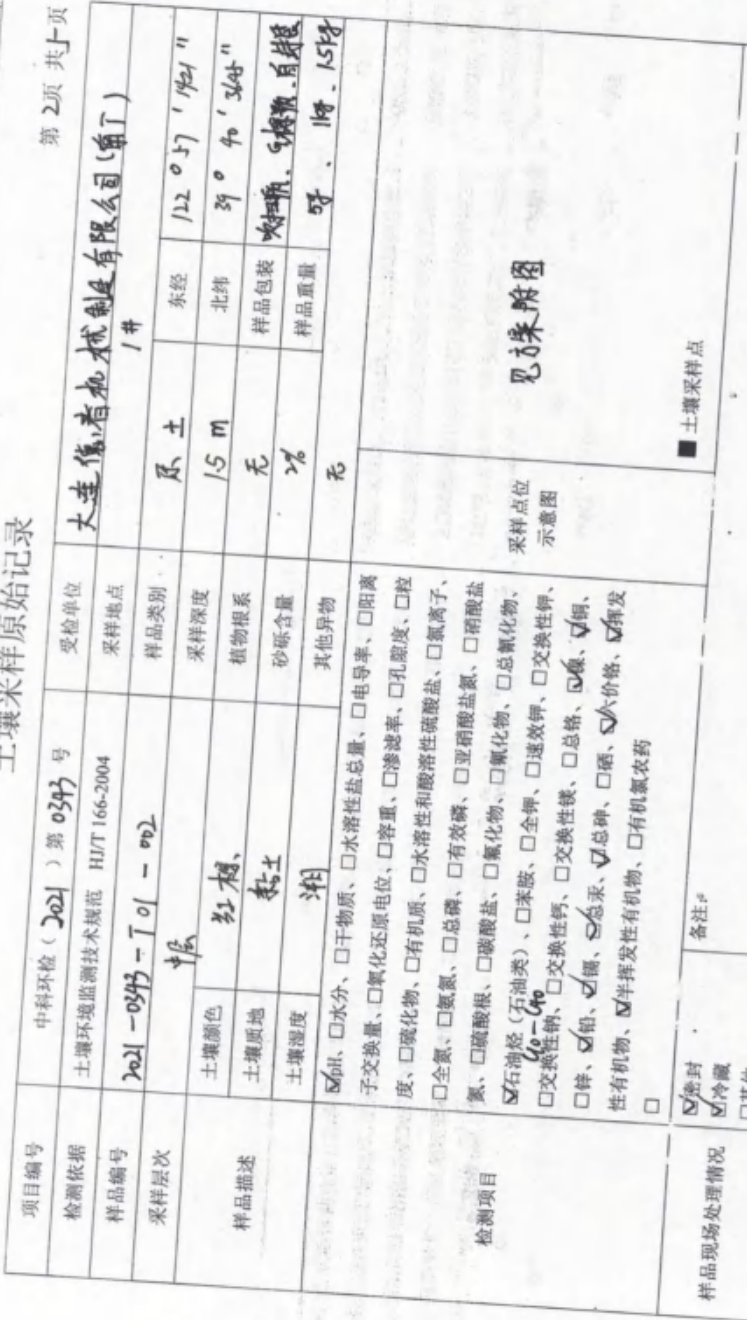 土壤采样原始记录
第 2页 共 页
项目编号 中科环检( 2021 )第 0343 号 受检单位 大连 有机 有限公司
检测依据 土壤环境监测技术规范 HJ/T 166-2004 采样地点 1#
样品编号 2021-0343-T01-002 样品类别 土 东经 122°57′1421″
采样层次 采样深度 1.5 m 北纬 39°40′3645″
样品描述 土壤颜色 红棕 植物根系 无 样品包装 吹扫瓶、棕 瓶、自封袋
土壤质地 黏土 砂砾含量 2% 样品重量 5g、1kg、1.5kg
土壤湿度 潮 其他异物 无
检测项目
☑pH、□水分、□干物质、□水溶性盐总量、□电导率、□阳离
子交换量、□氧化还原电位、□容重、□渗滤率、□孔隙度、□粒
度、□硫化物、□有机质、□水溶性和酸溶性硫酸盐、□氯离子、
□全氮、□氨氮、□总磷、□有效磷、□亚硝酸盐氮、□硝酸盐
氮、□硫酸根、□碳酸盐、□氟化物、□氰化物、□总氰化物、
☑石油烃(石油类)、□苯胺、□全钾、□速效钾、□交换性钾、
C10-C40
□交换性钠、□交换性钙、□交换性镁、□总铬、☑镍、☑铜、
□锌、☑铅、☑镉、☑总汞、☑总砷、□硒、☑六价铬、☑挥发
性有机物、☑半挥发性有机物、□有机氯农药
□
采样点位
示意图
见方案附图
■ 土壤采样点
样品现场处理情况
☑密封
☑冷藏
□其他
备注: